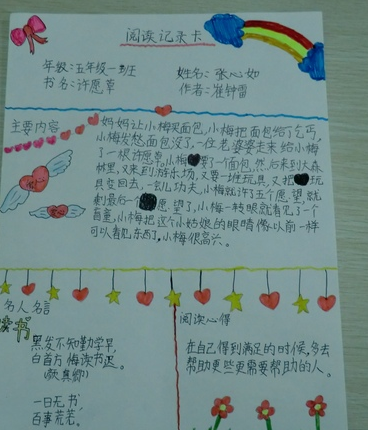 阅读记录卡
年级：五年级一班 姓名：张心如
书名：许愿草 作者：崔钟雷
主要内容
妈妈让小梅买面包，小梅把面包给了乞丐，
小梅发愁面包没了，一位老婆婆走来给小梅
了一根许愿草，小梅要了一个面包，然后来到大森
林里，又来到游乐场，又要一堆玩具，又把玩
具变回去，一会儿功夫，小梅就许了五个愿望，就
剩最后一个愿望了，小梅一转眼就看见了一个
盲童，小梅把这个小姑娘的眼睛像以前一样
可以看见东西了，小梅很高兴。
名人名言
读书
黑发不知勤学早，
白首方悔读书迟。
(颜真卿)
一日无书，
百事荒芜。
阅读心得
在自己得到满足的时候，多去
帮助更些更需要帮助的人。